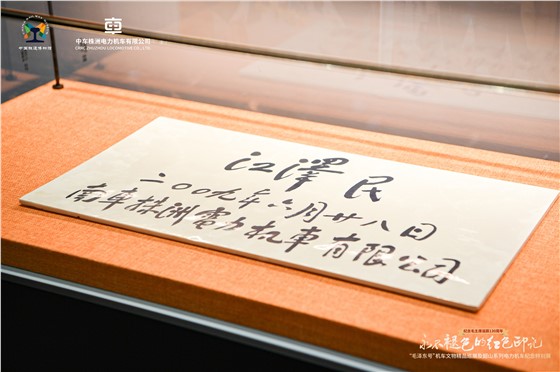 中国铁道博物馆
中车株洲电力机车有限公司
CRRC ZHUZHOU LOCOMOTIVE CO., LTD.
江澤民
二〇〇九年六月廿八日
南車株洲電力机車有限公司
纪念毛主席诞辰130周年
永不褪色的红色印记
"毛泽东号"机车文物精品选展暨韶山系列电力机车纪念特别展